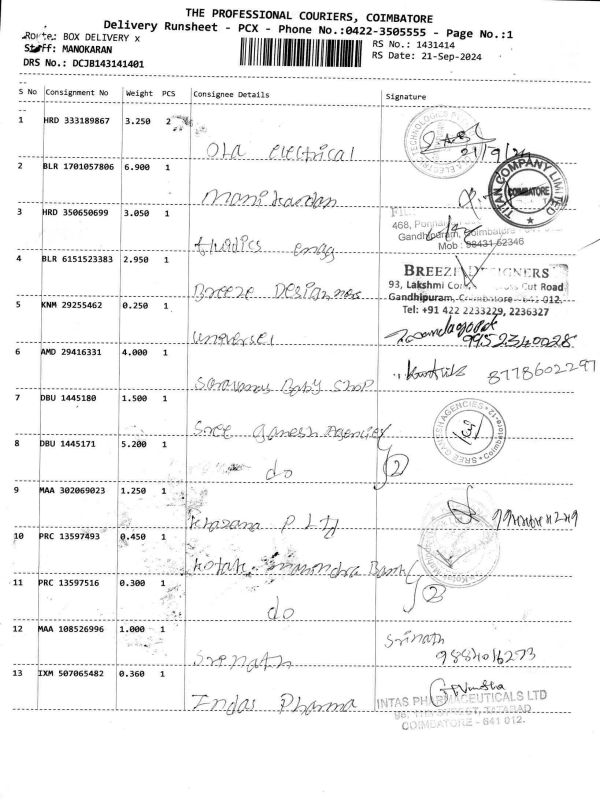 THE PROFESSIONAL COURIERS, COIMBATORE
Delivery Runsheet - PCX - Phone No.:0422-3505555 - Page No.:1
Route: BOX DELIVERY x
Staff: MANOKARAN
DRS No.: DCJB143141401
RS No.: 1431414
RS Date: 21-Sep-2024
S No Consignment No Weight PCS Consignee Details Signature
1 HRD 333189867 3.250 2
Ola electrical
21/9/24
2 BLR 1701057806 6.900 1
Manikandan
TITAN COMPANY LIMITED
COIMBATORE
3 HRD 350650699 3.050 1
468,
Gandhipuram, Coimbatore
Mob : 98431 62346
4 BLR 6151523383 2.950 1
Breeze Designers
BREEZE DESIGNERS
93, Lakshmi Cross Cut Road
Gandhipuram, Coimbatore - 641 012.
Tel: +91 422 2233229, 2236327
5 KNM 29255462 0.250 1
universel
9952340028
6 AMD 29416331 4.000 1
Saravanas Baby Shop
Karthik 8778602297
7 DBU 1445180 1.500 1
Sree ganesh Agencies
SREE GANESH AGENCIES
Coimbatore-12
8 DBU 1445171 5.200 1
do
2
9 MAA 302069023 1.250 1
Khazana P Ltd
10 PRC 13597493 0.450 1
kotak mahendra Bank
11 PRC 13597516 0.300 1
do
2
12 MAA 108526996 1.000 1
Srenath
Srinath
9884016273
13 IXM 507065482 0.360 1
Indas Pharma
INTAS PHARMACEUTICALS LTD
TATABAD,
COIMBATORE - 641 012.